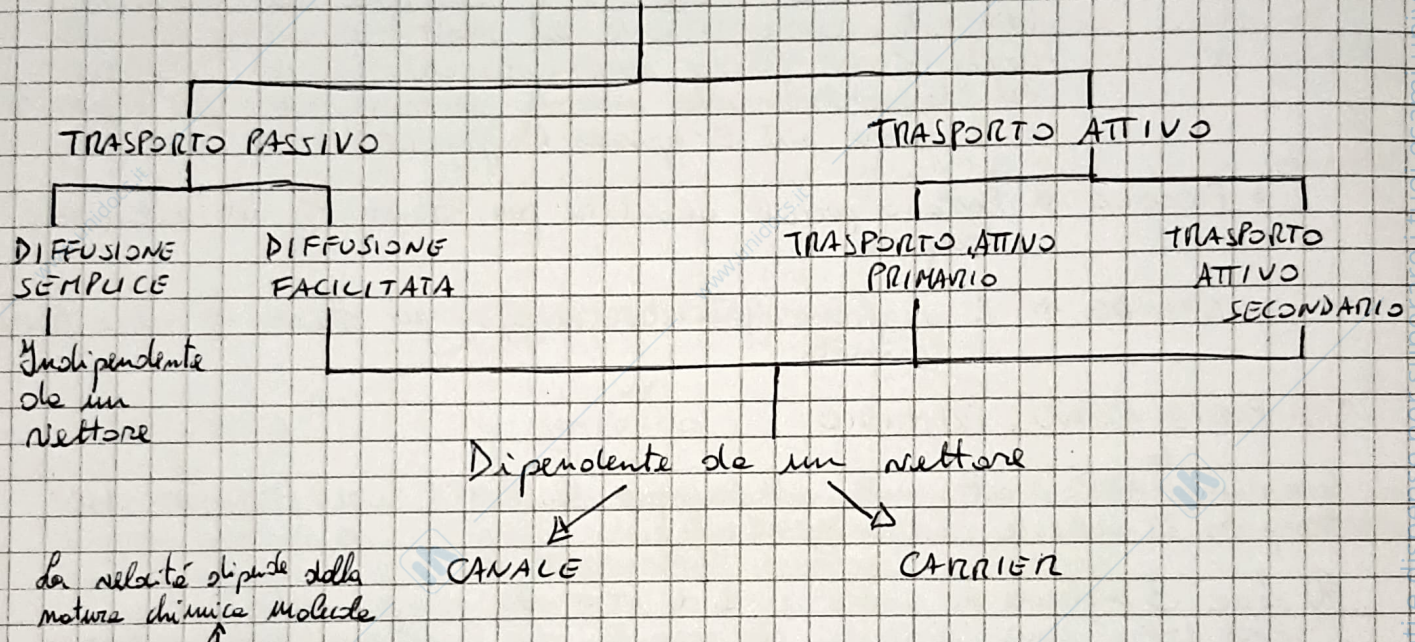 TRASPORTO PASSIVO
TRASPORTO ATTIVO
DIFFUSIONE
SEMPLICE
DIFFUSIONE
FACILITATA
TRASPORTO ATTIVO
PRIMARIO
TRASPORTO
ATTIVO
SECONDARIO
Indipendente
da un
vettore
Dipendente da un vettore
CANALE
CARRIER
La velocità dipende dalla
natura chimica molecole